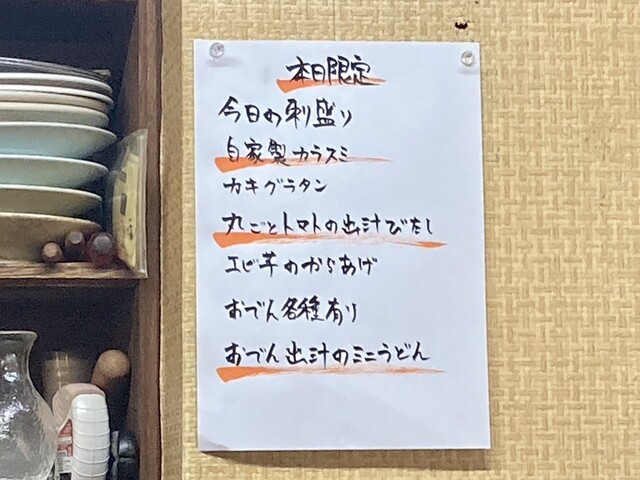 本日限定
今日の刺盛り
自家製カラスミ
カキグラタン
丸ごとトマトの出汁びたし
エビ芋のからあげ
おでん各種有り
おでん出汁のミニうどん